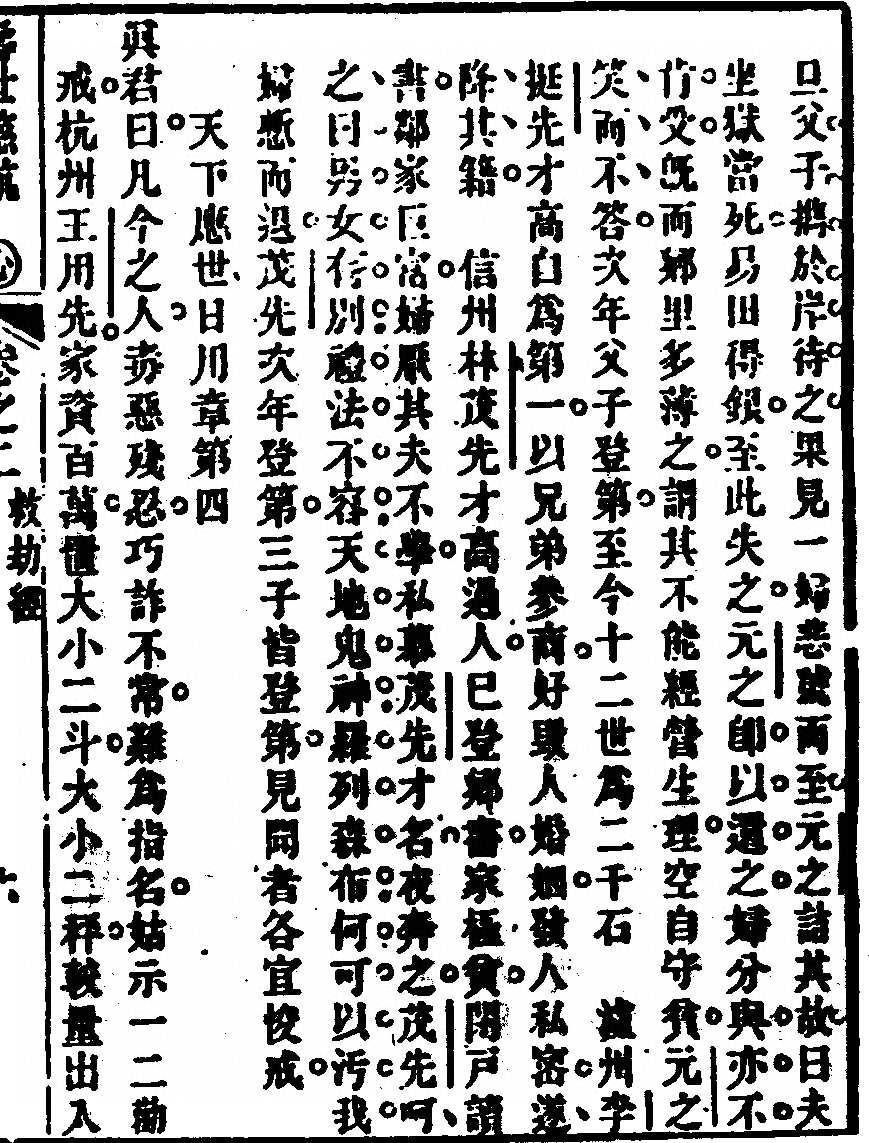 旦父子艤於岸待之果見一婦悲號而至元之詰其故曰夫
坐獄當死易田得銀至此失之元之卽以還之婦分與亦不
肯受旣而鄰里多薄之謂其不能經營生理空自守貧元之
笑而不答次年父子登第至今十二世爲二千石 瀘州李
挺先才高自爲第一以兄弟參商好毀人婚姻發人私密遂
降其籍 信州林茂先才高過人已登鄉書家極貧閉戸讀
書鄰家巨富婦厭其夫不學私慕茂先才名夜奔之茂先呵
之曰男女有別禮法不容天地鬼神羅列森布何可以汚我
婦慙而退茂先次年登第三子皆登第見聞者各宜悛戒
天下應世日用章第四
眞君曰凡今之人毒惡殘忍巧詐不常難爲指名姑示一二勸
戒杭州王用先家資百萬置大小二斗大小二秤較量出入
救劫經